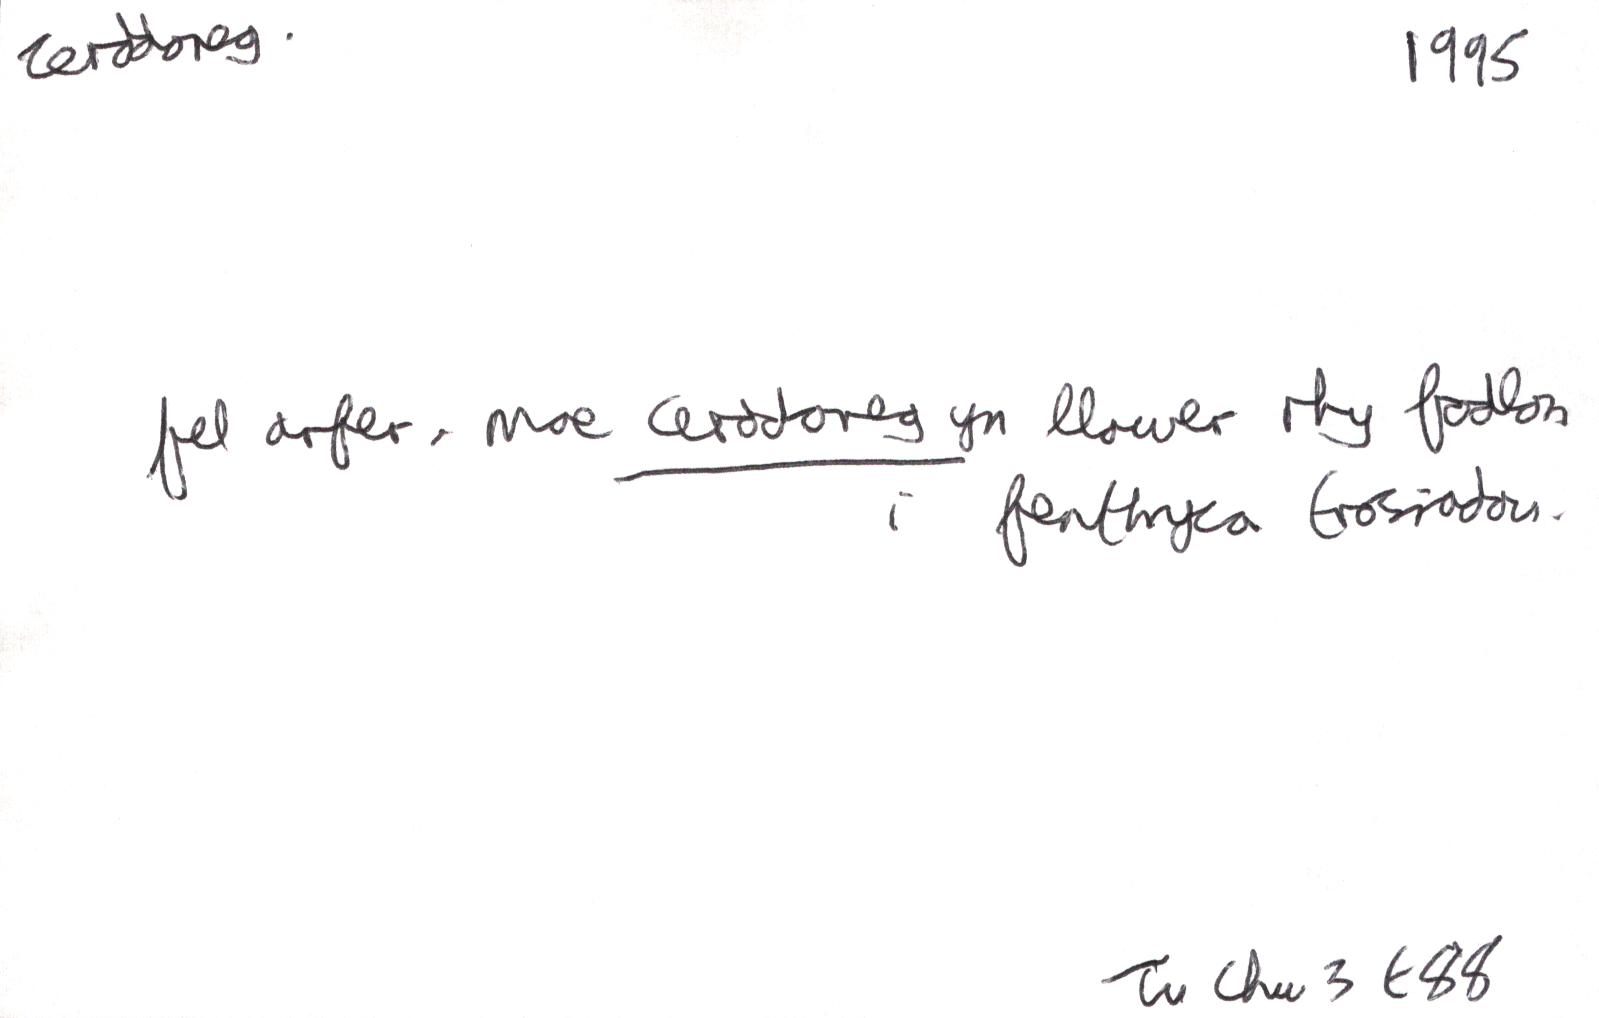 cerddoreg.
1995
fel arfer, mae cerddoreg yn llawer rhy fodlon
i fenthyca trosiadau.
Tu Chw 3 t88